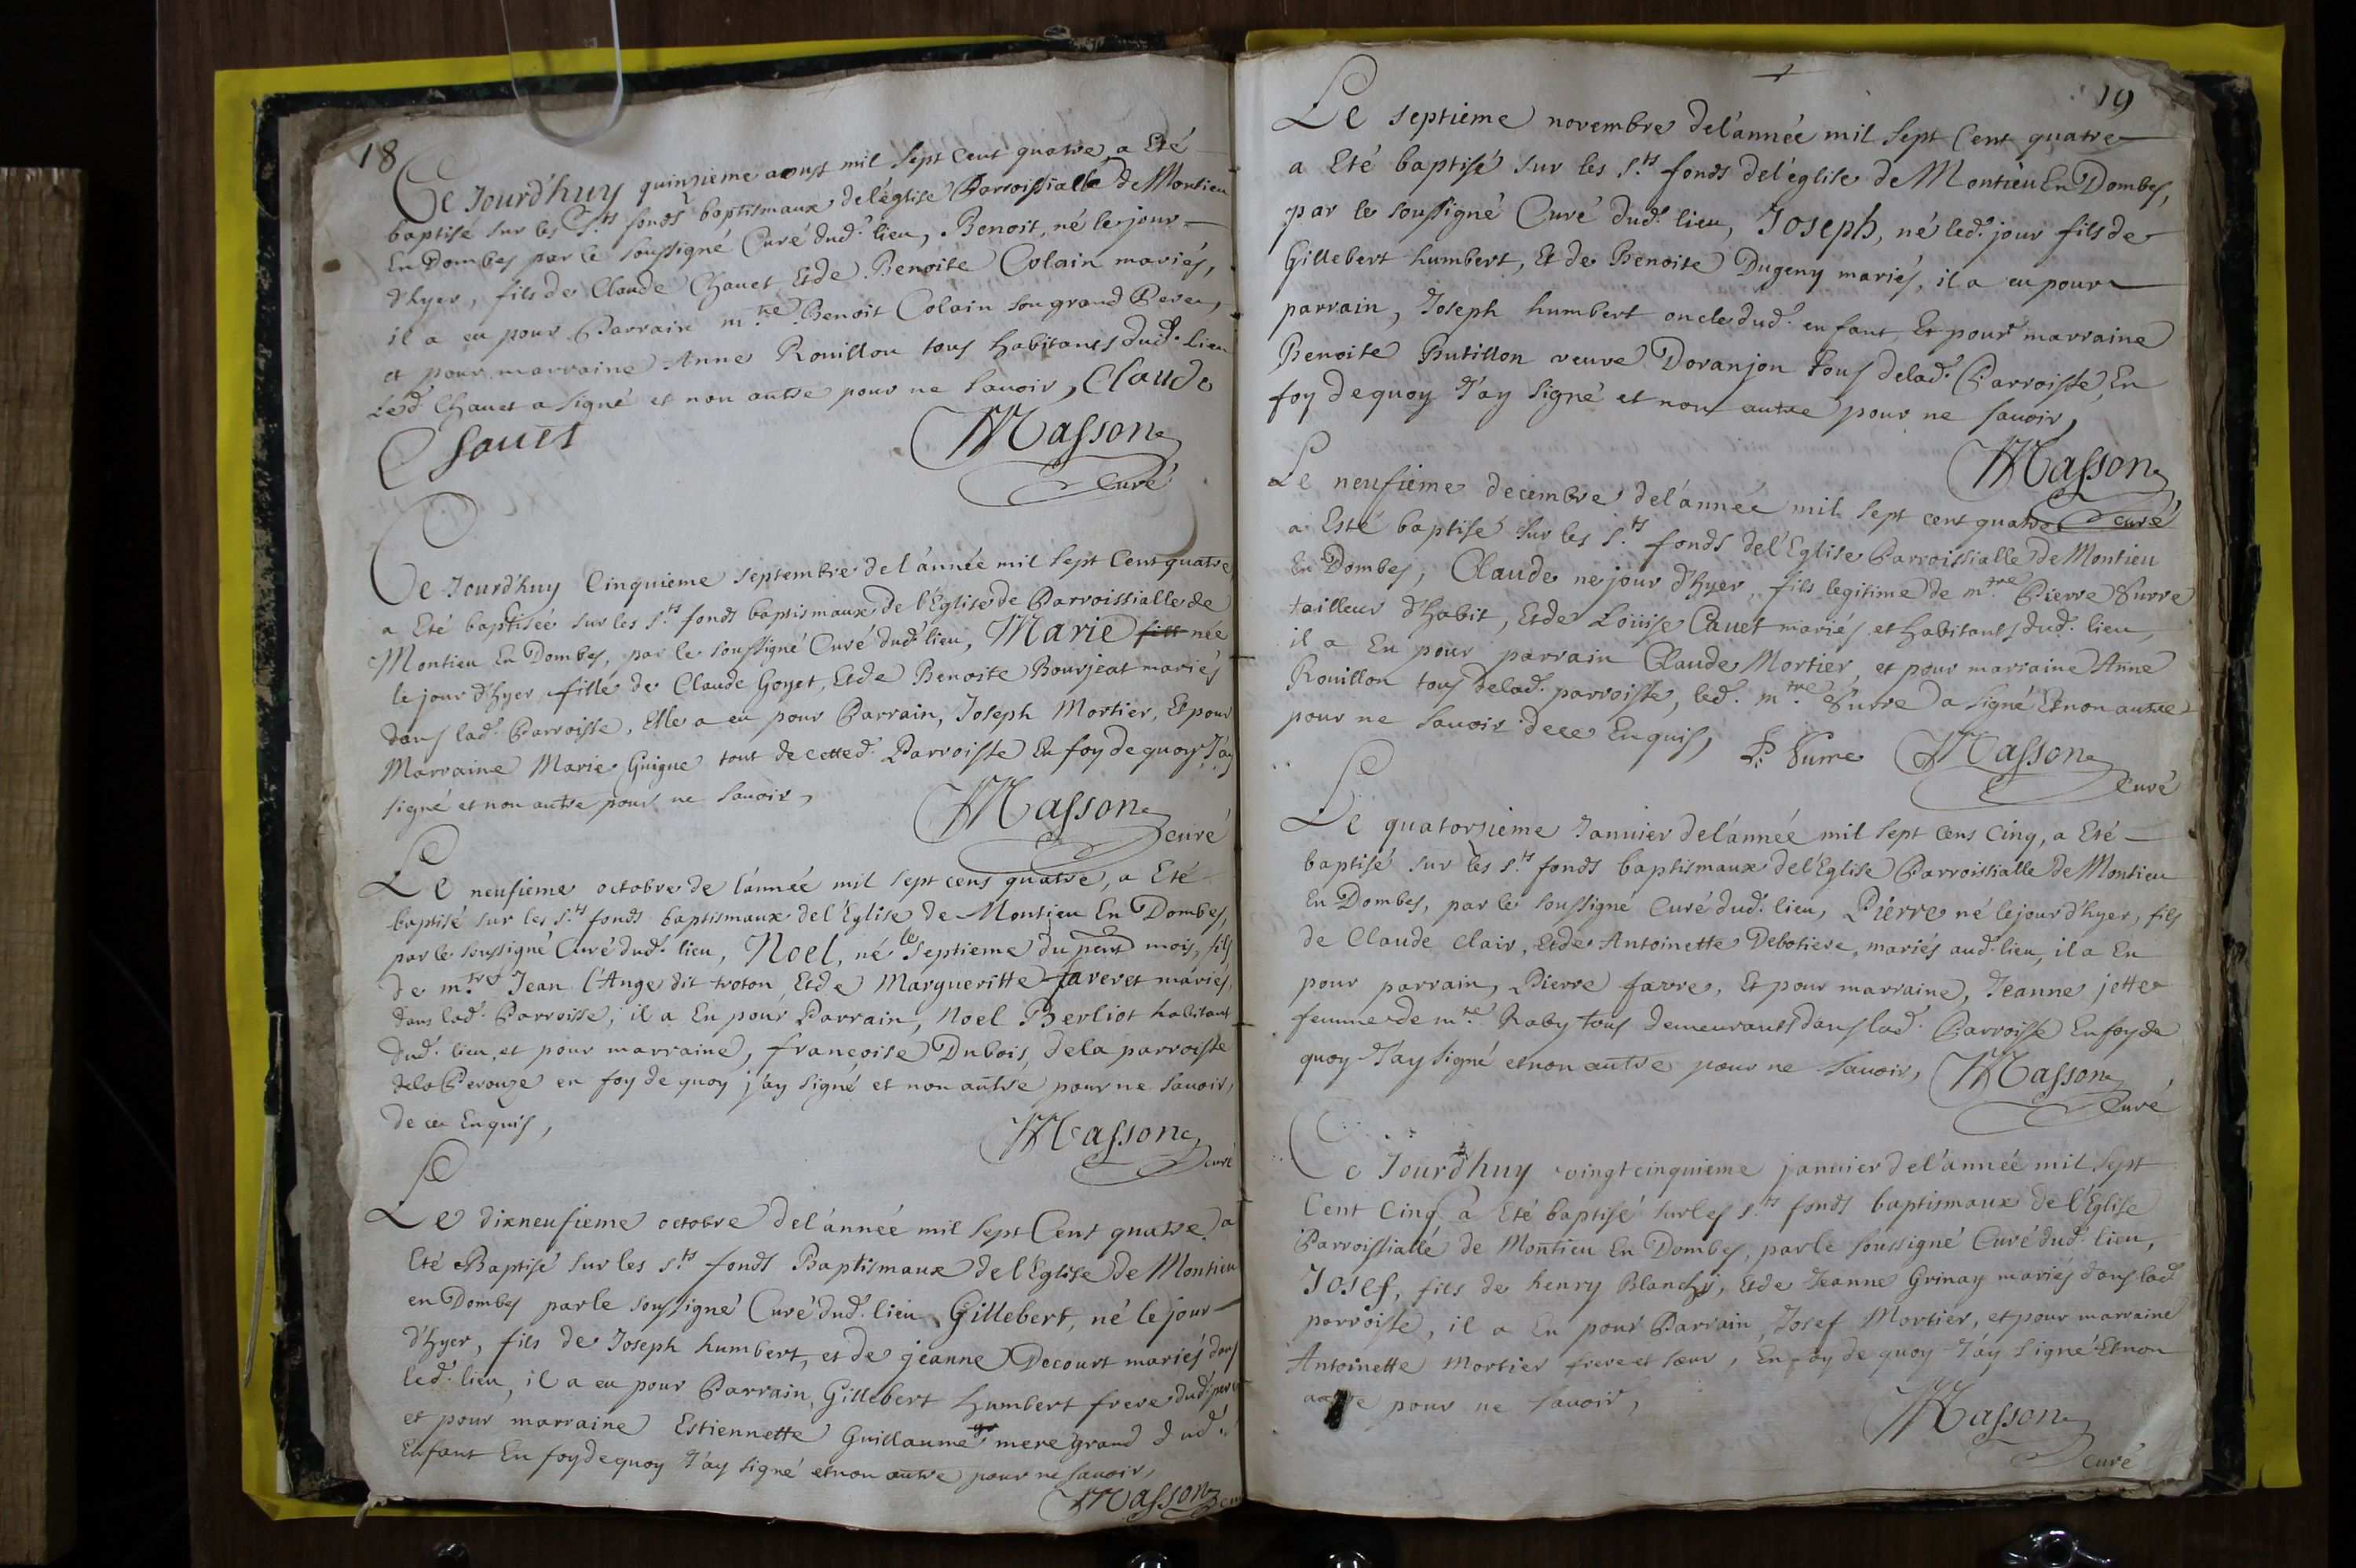 18
Ce Jourd'huy quinzieme aoust mil sept cent quatre a Eté
baptisé sur les S.ts fonds baptismaux de l'église Parroissialle de Montieu
En Dombes par le soussigné Curé dud. lieu, Benoit, né le jour
d'hyer, fils de Claude Chauet Et de Benoite Colain mariés,
il a eu pour Parrain m.tre Benoit Colain son grand Pere,
et pour marraine Anne Rouillon tous habitants dud. lieu
Led. Chauet a signé et non autre pour ne sauoir, Claude
Chauet
Masson
Curé
Ce Jourd'huy Cinquieme septembre de l'année mil sept Cent quatre
a Eté baptisée sur les S.ts fonds baptismaux de l'Eglise de Parroissialle de
Montieu En Dombes, par le soussigné Curé dud. lieu, Marie fill née
le jour d'hyer fille de Claude Goyet, Et de Benoite Bourjeat mariés
dans lad. Parroisse, Elle a eu pour Parrain, Joseph Mortier, Et pour
Marraine Marie Guigue tout de cetted. Parroisse En foy de quoy J'ay
signé et non autre pour ne sauoir,
Masson
curé
Le neufieme octobre de l'année mil sept cens quatre, a Eté
baptisé sur les S.ts fonds baptismaux de l'Eglise de Montieu En Dombes,
par le soussigné Curé dud. lieu, Noel, né le septieme du pent mois, fils
de m.tre Jean l'Ange dit troton, Et de Margueritte faveret mariés,
dans lad. Parroisse, il a Eu pour Parrain, Noel Berliot habitant
dud. lieu, et pour marraine, françoise Dubois, de la parroisse
de la Perouze en foy de quoy j'ay signé et non autre pour ne sauoir,
de ce Enquis,
Masson
curé
Le dixneufieme octobre de l'année mil sept Cent quatre a
Eté Baptisé sur les S.ts fonds Baptismaux de l'Eglise de Montieu
en Dombes par le soussigné Curé dud. lieu Gillebert, né le jour
d'hyer, fils de Joseph humbert, et de jeanne Decourt mariés dans
led. lieu, il a eu pour Parrain, Gillebert humbert frere dud. pere
et pour marraine Estiennette Guillaume gr mere grand dud.
Enfant En foy de quoy J'ay signé et non autre pour ne sauoir,
Masson
19
Le septieme novembre de l'année mil sept Cent quatre
a Eté baptisé sur les S.ts fonds de l'église de Montieu En Dombes,
par le soussigné Curé dud. lieu, Joseph, né led. jour fils de
Gillebert humbert, Et de Benoite Dugeny mariés, il a eu pour
parrain, Joseph humbert oncle dud. enfant, Et pour marraine
Benoite Butillon veuve Doranjon tous de lad. Parroisse, En
foy de quoy J'ay signé et non autre pour ne sauoir,
Masson
curé
Le neufieme decembre de l'année mil sept cent quatre
a Esté baptisé sur les S.ts fonds de l'Eglise Parroissialle de Montieu
En Dombes, Claude ne jour d'hyer, fils legitime de m.tre Pierre Vurre
tailleur d'habit, Et de Loüise Cauet mariés et habitants dud. lieu,
il a Eu pour parrain Claude Mortier, et pour marraine Anne
Rouillon tous de lad. parroisse, led. m.tre Vurre a signé Et non autre
pour ne sauoir de ce Enquis,
P. Vurre
Masson
Curé
Le quatorzieme Januier de l'année mil sept cens cinq, a Eté
baptisé sur les S.ts fonds baptismaux de l'Eglise Parroissialle de Montieu
En Dombes, par le soussigné Curé dud. lieu, Pierre né le jour d'hyer, fils
de Claude Clair, Et de Antoinette Debotiere, mariés aud. lieu, il a Eu
pour parrain, Pierre favre, Et pour marraine, Jeanne jette
femme de m.tre Raby tous demeurants dans lad. Parroisse En foy de
quoy J'ay signé et non autre pour ne sauoir,
Masson
Curé
Ce Jourd'huy vingt cinquieme januier de l'année mil sept
Cent Cinq a Eté baptisé sur les S.ts fonds baptismaux de l'Eglise
Parroissialle de Montieu En Dombes, par le soussigné Curé dud. lieu,
Josef, fils de henry Blanchy, Et de Jeanne Grinay mariés dans lad.
parroisse, il a Eu pour Parrain, Josef Mortier, et pour marraine
Antoinette Mortier frere et sœur, En foy de quoy J'ay signé Et non
autre pour ne sauoir,
Masson
curé